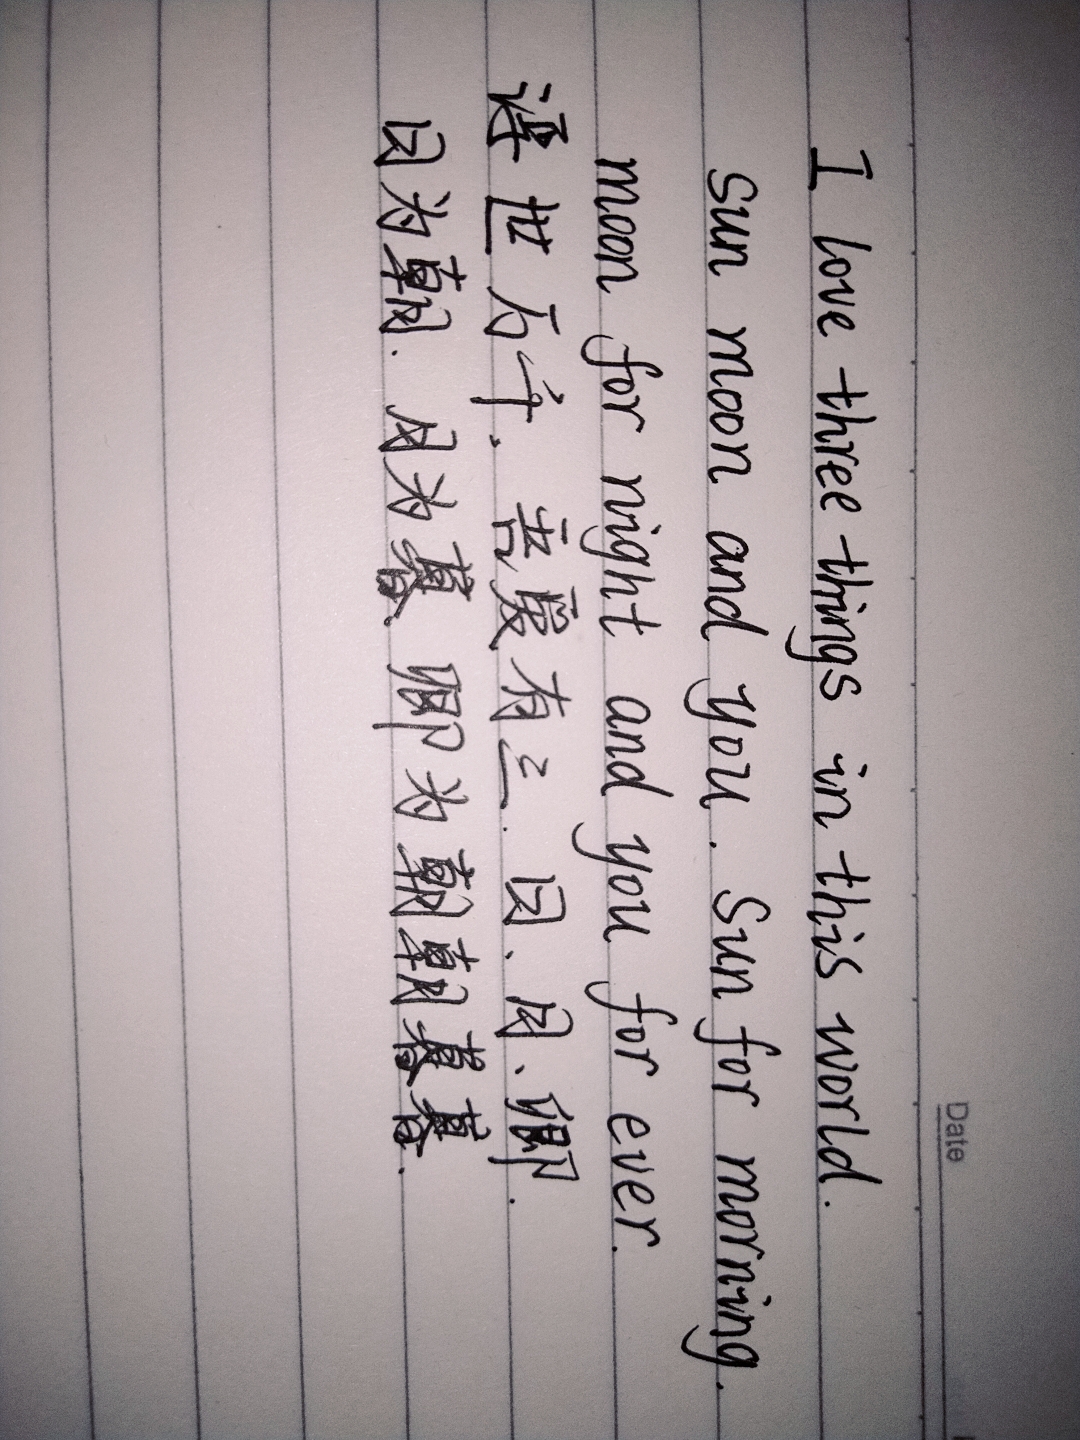 Date
I love three things in this world.
Sun moon and you. Sun for morning.
moon for night and you for ever.
浮世万千. 吾爱有三. 日、月、卿.
日为朝. 月为暮. 卿为朝朝暮暮.